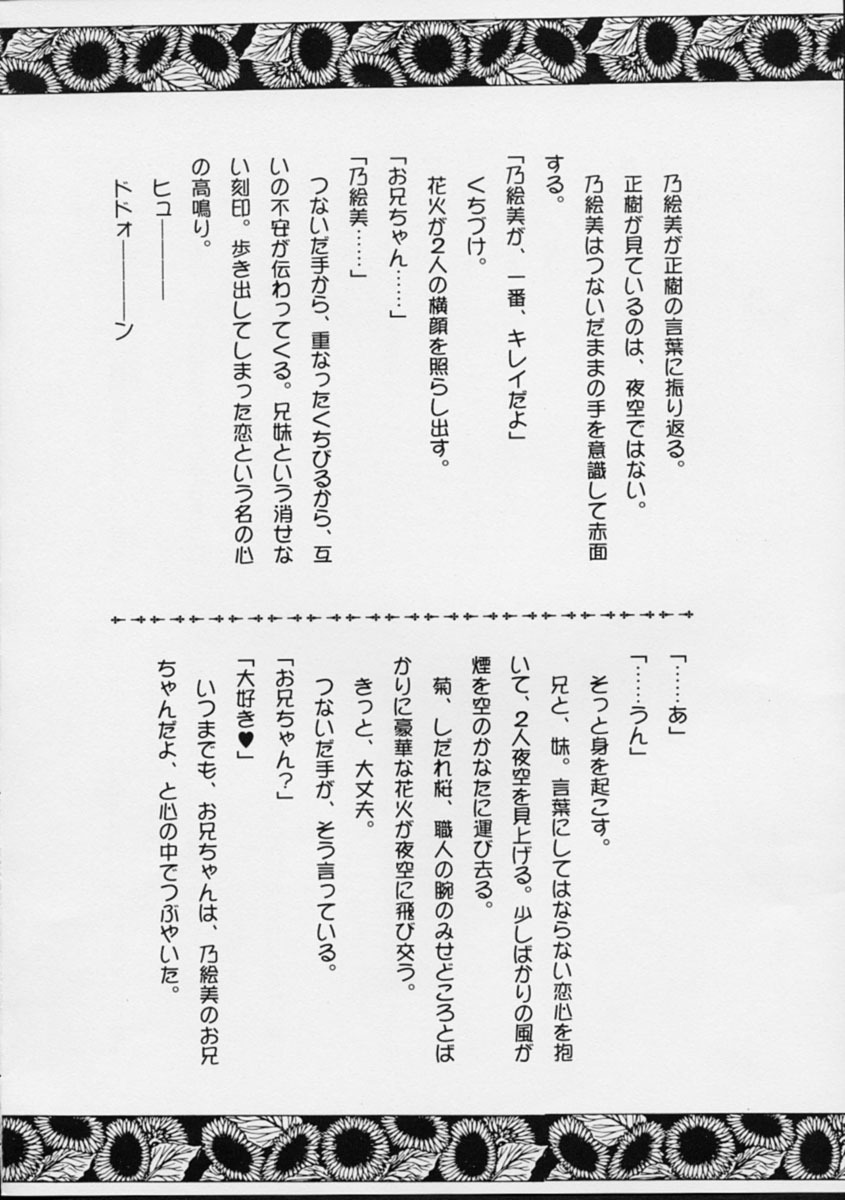 乃絵美が正樹の言葉に振り返る。
正樹が見ているのは、夜空ではない。
乃絵美はつないだままの手を意識して赤面
する。
「乃絵美が、一番、キレイだよ」
くちづけ。
花火が２人の横顔を照らし出す。
「お兄ちゃん……」
「乃絵美……」
つないだ手から、重なったくちびるから、互
いの不安が伝わってくる。兄妹という消せな
い刻印。歩き出してしまった恋という名の心
の高鳴り。
ヒュ――――
ドドォ――――ン
「……あ」
「……うん」
そっと身を起こす。
兄と、妹。言葉にしてはならない恋心を抱
いて、２人夜空を見上げる。少しばかりの風が
煙を空のかなたに運び去る。
菊、しだれ桜、職人の腕のみせどころとば
かりに豪華な花火が夜空に飛び交う。
きっと、大丈夫。
つないだ手が、そう言っている。
「お兄ちゃん？」
「大好き♥」
いつまでも、お兄ちゃんは、乃絵美のお兄
ちゃんだよ、と心の中でつぶやいた。